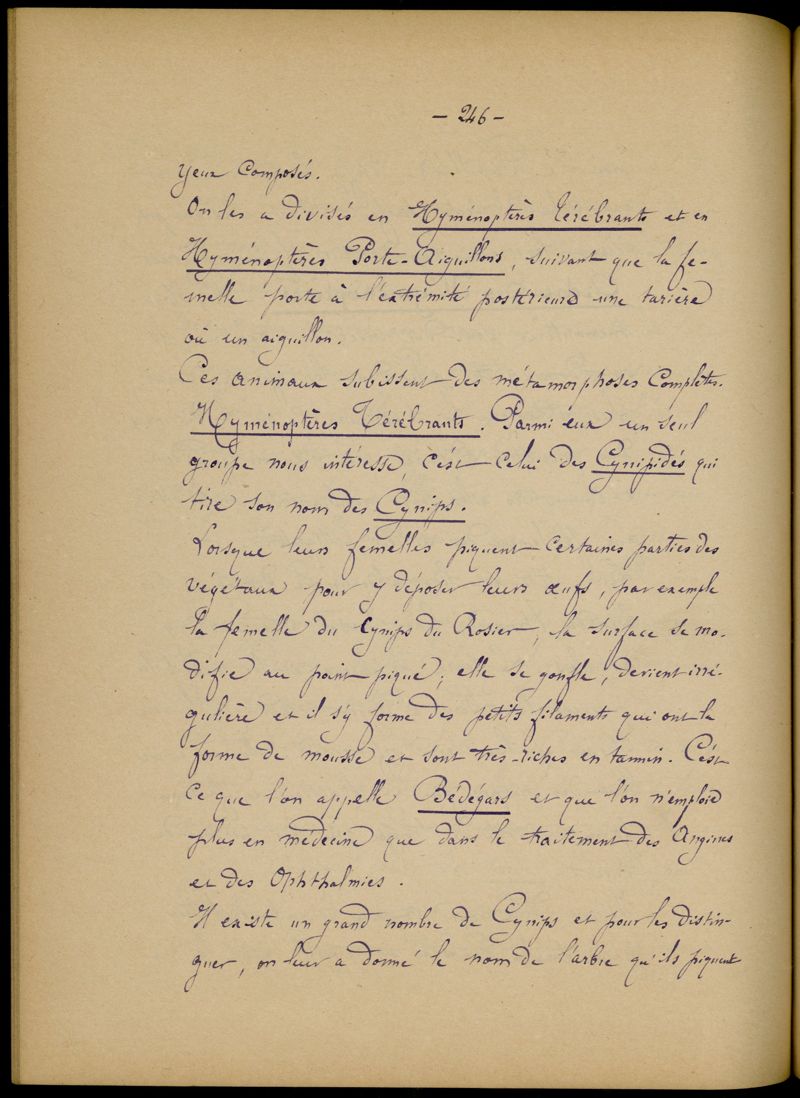 - 246 -
yeux Composés.
On les a divisés en Hyménoptères Térébrants et en
Hyménoptères Porte-Aiguillons, suivant que la fe-
melle porte à l'extrémité postérieure une tarière
où un aiguillon.
Ces animaux subissent des métamorphoses Complètes.
Hyménoptères Térébrants. Parmi eux un seul
groupe nous intéresse, c'est celui des Cynipidés qui
tire son nom des Cynips.
Lorsque leurs femelles piquent certaines parties des
végétaux pour y déposer leurs œufs, par exemple
la femelle du Cynips du Rosier, la surface se mo-
difie au point piqué; elle se gonfle, devient irré-
gulière et il s'y forme des petits filaments qui ont la
forme de mousse et sont très-riches en tannin. C'est
ce que l'on appelle Bédégars et que l'on n'emploie
plus en médecine que dans le traitement des Angines
et des Ophthalmies.
Il existe un grand nombre de Cynips et pour les distin-
guer, on leur a donné le nom de l'arbre qu'ils piquent